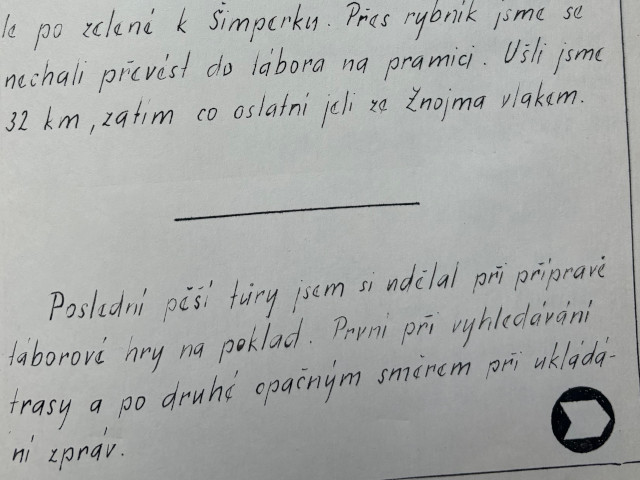 le po zelené k Šimperku. Přes rybník jsme se
nechali převést do tábora na pramici. Ušli jsme
32 km, zatím co ostatní jeli ze Znojma vlakem.
Poslední pěší túry jsem si udělal při přípravě
táborové hry na poklad. První při vyhledávání
trasy a po druhé opačným směrem při ukládá-
ní zpráv.